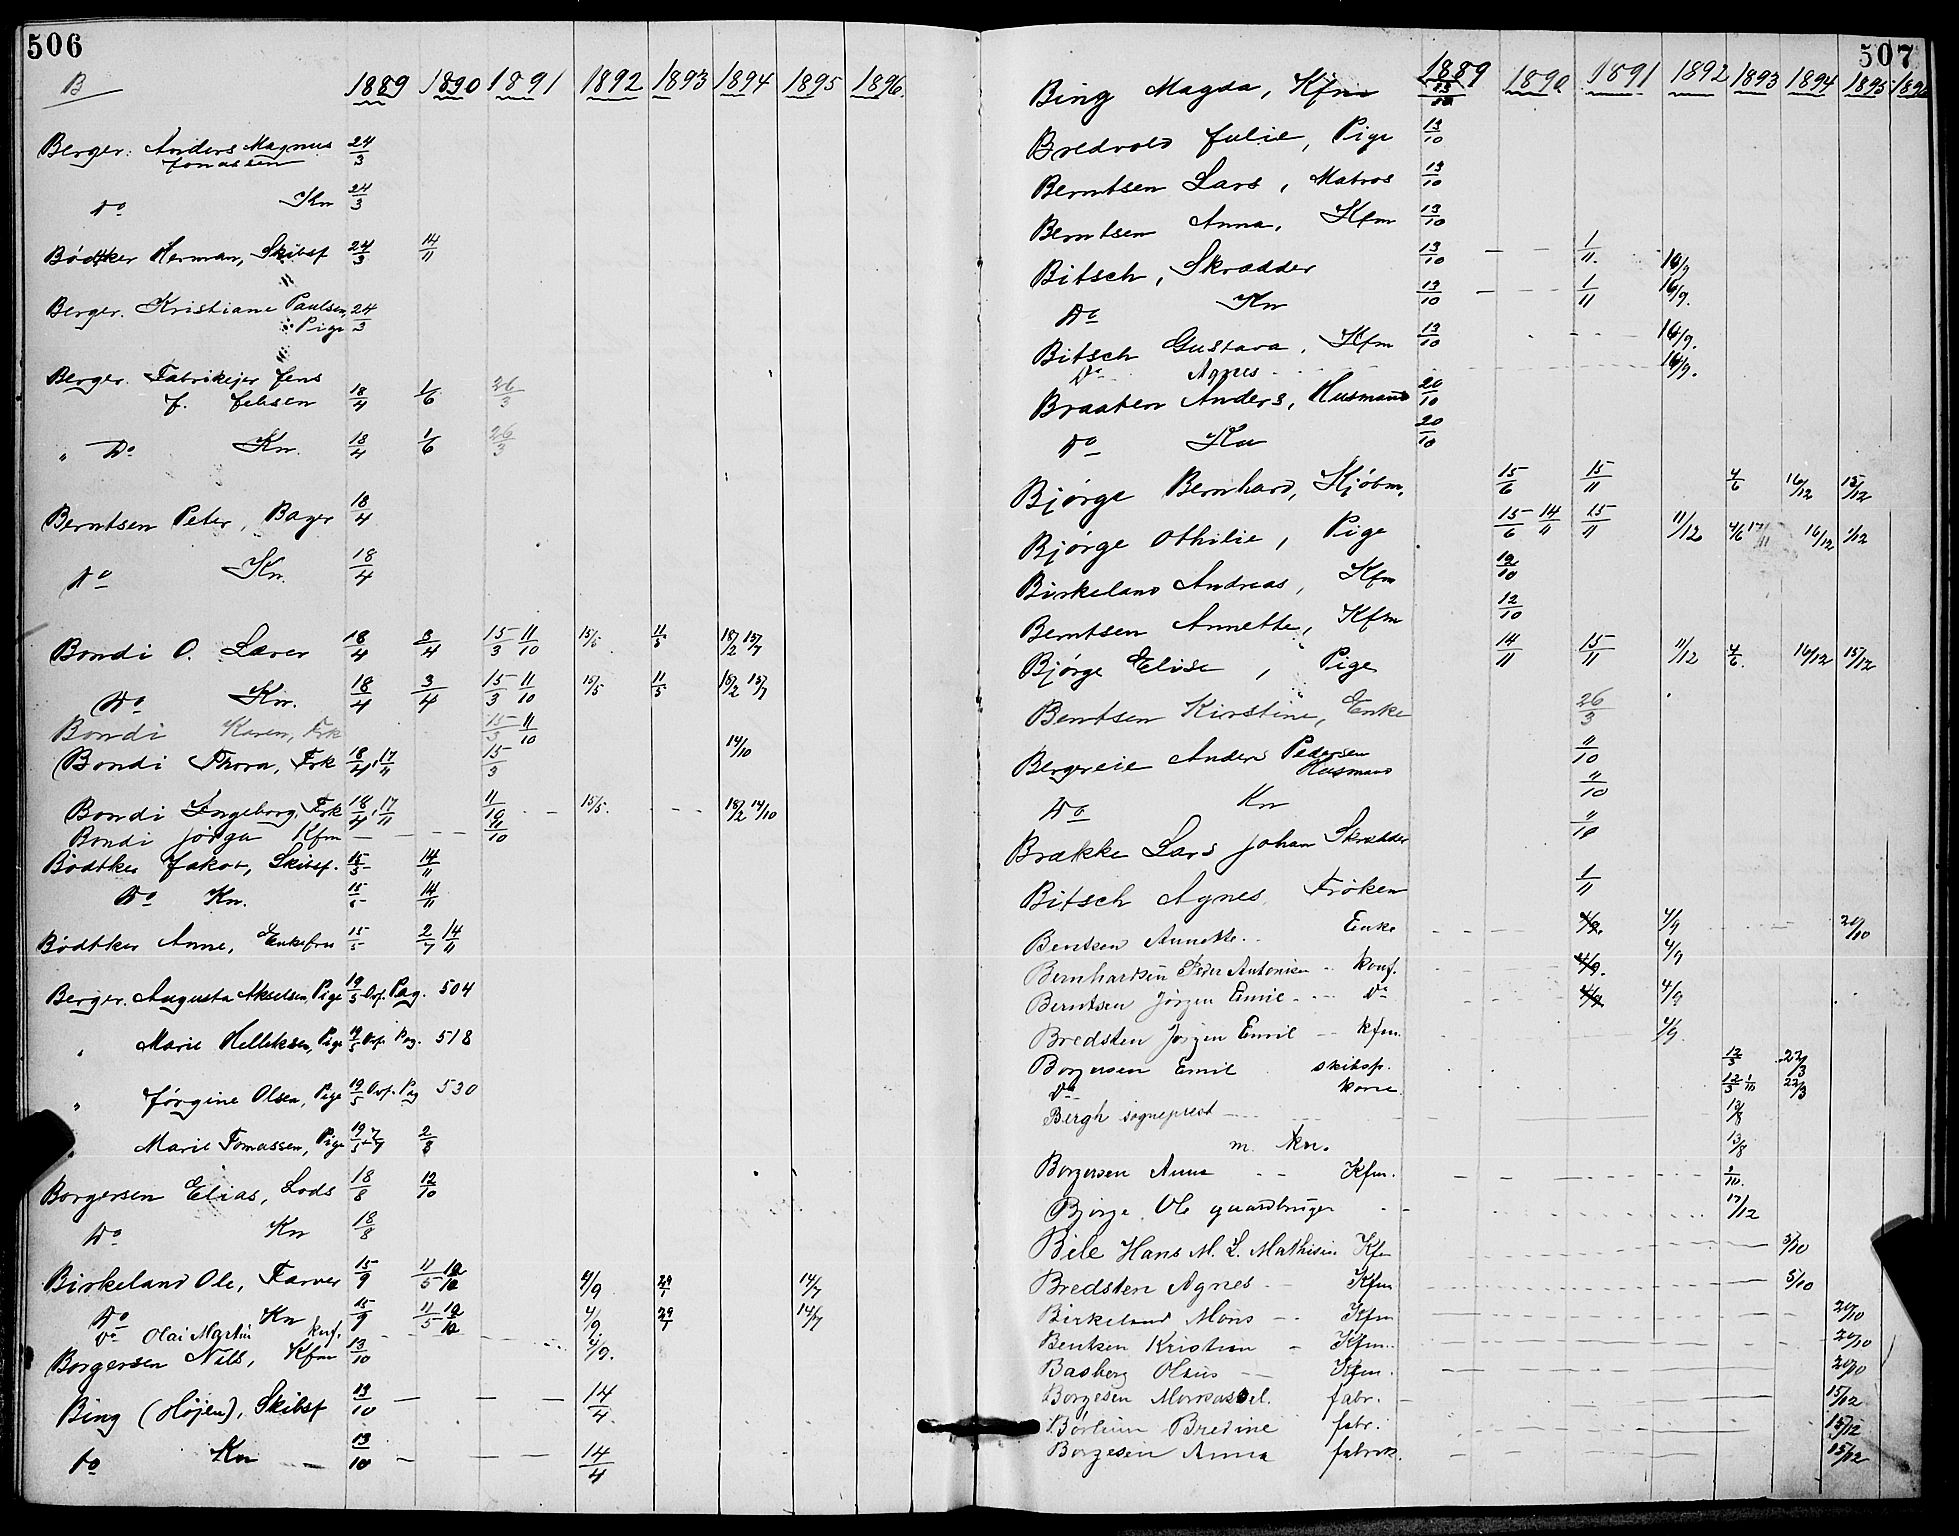 506
B 1889 1890 1891 1892 1893 1894 1895 1896.
Berger. Anders Magnus 24/3
Jonassen
Do Kn 24/3
Bødtker Herman, Skibsf 24/3 14/11
Berger. Kristiane Paulsen, 24/3
Pige
Berger. Fabrikejer Jens
J. Jebsen 18/4 1/6 26/3
" Do Kn. 18/4 1/6 26/3
Berntsen Peter, Bager 18/4
Do Kn. 18/4
Bondi O. Lærer 18/4 3/4 15/3 11/10 15/5 11/5 18/2 15/7
Do Kn. 18/4 3/4 15/3 11/10 15/5 11/5 18/2 15/7
Bondi Karen, Frk 15/3 11/10
Bondi Thora, Frk 18/4, 17/11 15/3 14/10
Bondi Ingeborg, Frk 18/4, 17/11 11/10 - - 15/5. - - 18/2 14/10
Bondi Jörga Kfm - - - 11/10
Bødtker Jakob, Skibsf. 15/5 14/11
Do Kn. 15/5 14/11
Bødtker Anne, Enkefru 15/5 2/7 14/11
Berger. Augusta Akselsen, Pige 19/5 Ovf. Pag. 504
" Marie Helleksen, Pige 19/5 Ovf. Pag. 518
" Jørgine Olsen, Pige 19/5 Ovf. Pag 530
" Marie Tomassen, Pige 19/5 2/8
Borgersen Elias, Lods 18/8 12/10
Do Kn 18/8
Birkeland Ole, Farver 15/9 11/5 4/9 29/1 14/7
Do Kn 15/9 11/5 4/9 29/1 14/7
Do Olai Martin konf. - - - 4/9.
Borgersen Nils, Kfm 13/10
Bing (Højen), Skibsf 13/10 - - - 14/4
Do Kn 13/10 - - - 14/4
507
1889 1890 1891 1892 1893 1894 1895 1896
Bing Magda, Kfm 13/10
Bredvold Julie, Pige 13/10
Berntsen Lars, Matros 13/10
Berntsen Anna, Kfm 13/10
Bitsch, Skrædder 13/10 - - 1/11 16/9
Do Kn 13/10 - - 1/11 16/9.
Bitsch Gustava, Kfm 13/10 - - 16/9.
Do Agnes 16/9.
Braaten Anders, Husmand 20/10
Do Kn 20/10
Bjørge Bernhard, Kjøbm. 15/6 15/11 4/6 16/12 15/12
Bjørge Othilie, Pige 15/6 14/11 15/11 11/12 4/6 17/11 16/12 1/12
Birkeland Andreas, Kfm 12/10
Berntsen Annette, Kfm 12/10
Bjørge Elise, Pige 14/11 15/11 11/12 4/6. 16/12 15/12
Berntsen Kirstine, Enke 26/3
Bergereie Anders Pedersen 11/10
Husmand
Do Kn 11/10
Brække Lars Johan Skrædder 11/10
Bitsch Agnes, Frøken 1/11
Bentsen Annette. Enke 4/9. 4/9 20/10
Bernhardsen Peder Antonius konf. 4/9. 4/9
Berntsen Jørgen Emil Do 4/9 4/9
Bredsten Jørgen Emil kfm. 4/9.
Borgersen Emil skibsf. 12/3 22/3
Do kone. 12/3 1/10 22/3
Bergh sogneprest 13/8
m. kn. 13/8
Borgersen Anna Kfm. 1/10.
Bjørge, Ole gaardbruger 17/12
Bile Hans M. L. Mathisen Kfm 5/10
Bredsten Agnes Kfm 5/10
Birkeland Mons Kfm 20/10
Bentsen Kristian Kfm. 20/10
Basberg Olsus Kfm. 20/10
Borgesen fabr. 15/12
Bredine fabr. 15/12
Borgesen Anna fabrik. 15/12